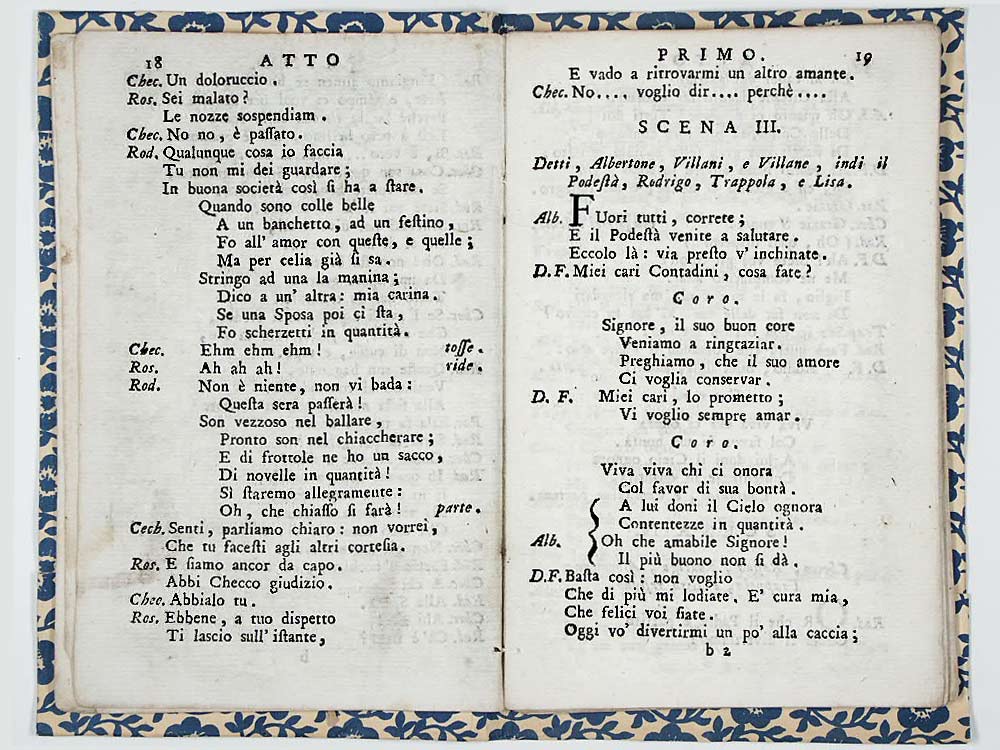 18 ATTO
Chec. Un doloruccio.
Ros. Sei malato?
Le nozze sospendiam.
Chec. No no, è paſſato.
Rod. Qualunque cosa io faccia
Tu non mi dei guardare;
In buona società così ſi ha a ſtare.
Quando sono colle belle
A un banchetto, ad un feſtino,
Fo all' amor con queſte, e quelle;
Ma per celia già ſi sa.
Stringo ad una la manina;
Dico a un' altra: mia carina.
Se una Sposa poi ci ſta,
Fo scherzetti in quantità.
Chec. Ehm ehm ehm! toſſe.
Ros. Ah ah ah! ride.
Rod. Non è niente, non vi bada:
Queſta sera paſſerà!
Son vezzoso nel ballare,
Pronto son nel chiaccherare;
E di frottole ne ho un sacco,
Di novelle in quantità!
Sì ſtaremo allegramente:
Oh, che chiaſſo ſi farà! parte.
Cech. Senti, parliamo chiaro: non vorrei,
Che tu faceſti agli altri corteſia.
Ros. E ſiamo ancor da capo.
Abbi Checco giudizio.
Chec. Abbialo tu.
Ros. Ebbene, a tuo dispetto
Ti lascio sull' iſtante,
b
PRIMO. 19
E vado a ritrovarmi un altro amante.
Chec. No.... voglio dir.... perchè....
SCENA III.
Detti, Albertone, Villani, e Villane, indi il
Podeſtà, Rodrigo, Trappola, e Lisa.
Alb. FUori tutti, correte;
E il Podeſtà venite a salutare.
Eccolo là: via preſto v' inchinate.
D.F. Miei cari Contadini, cosa fate?
Coro.
Signore, il suo buon core
Veniamo a ringraziar.
Preghiamo, che il suo amore
Ci voglia conservar.
D. F. Miei cari, lo prometto;
Vi voglio sempre amar.
Coro.
Viva viva chi ci onora
Col favor di sua bontà.
A lui doni il Cielo ognora
Contentezze in quantità.
Alb. Oh che amabile Signore!
Il più buono non ſi dà.
D.F. Baſta così: non voglio
Che di più mi lodiate. E' cura mia,
Che felici voi ſiate.
Oggi vo' divertirmi un po' alla caccia;
b 2